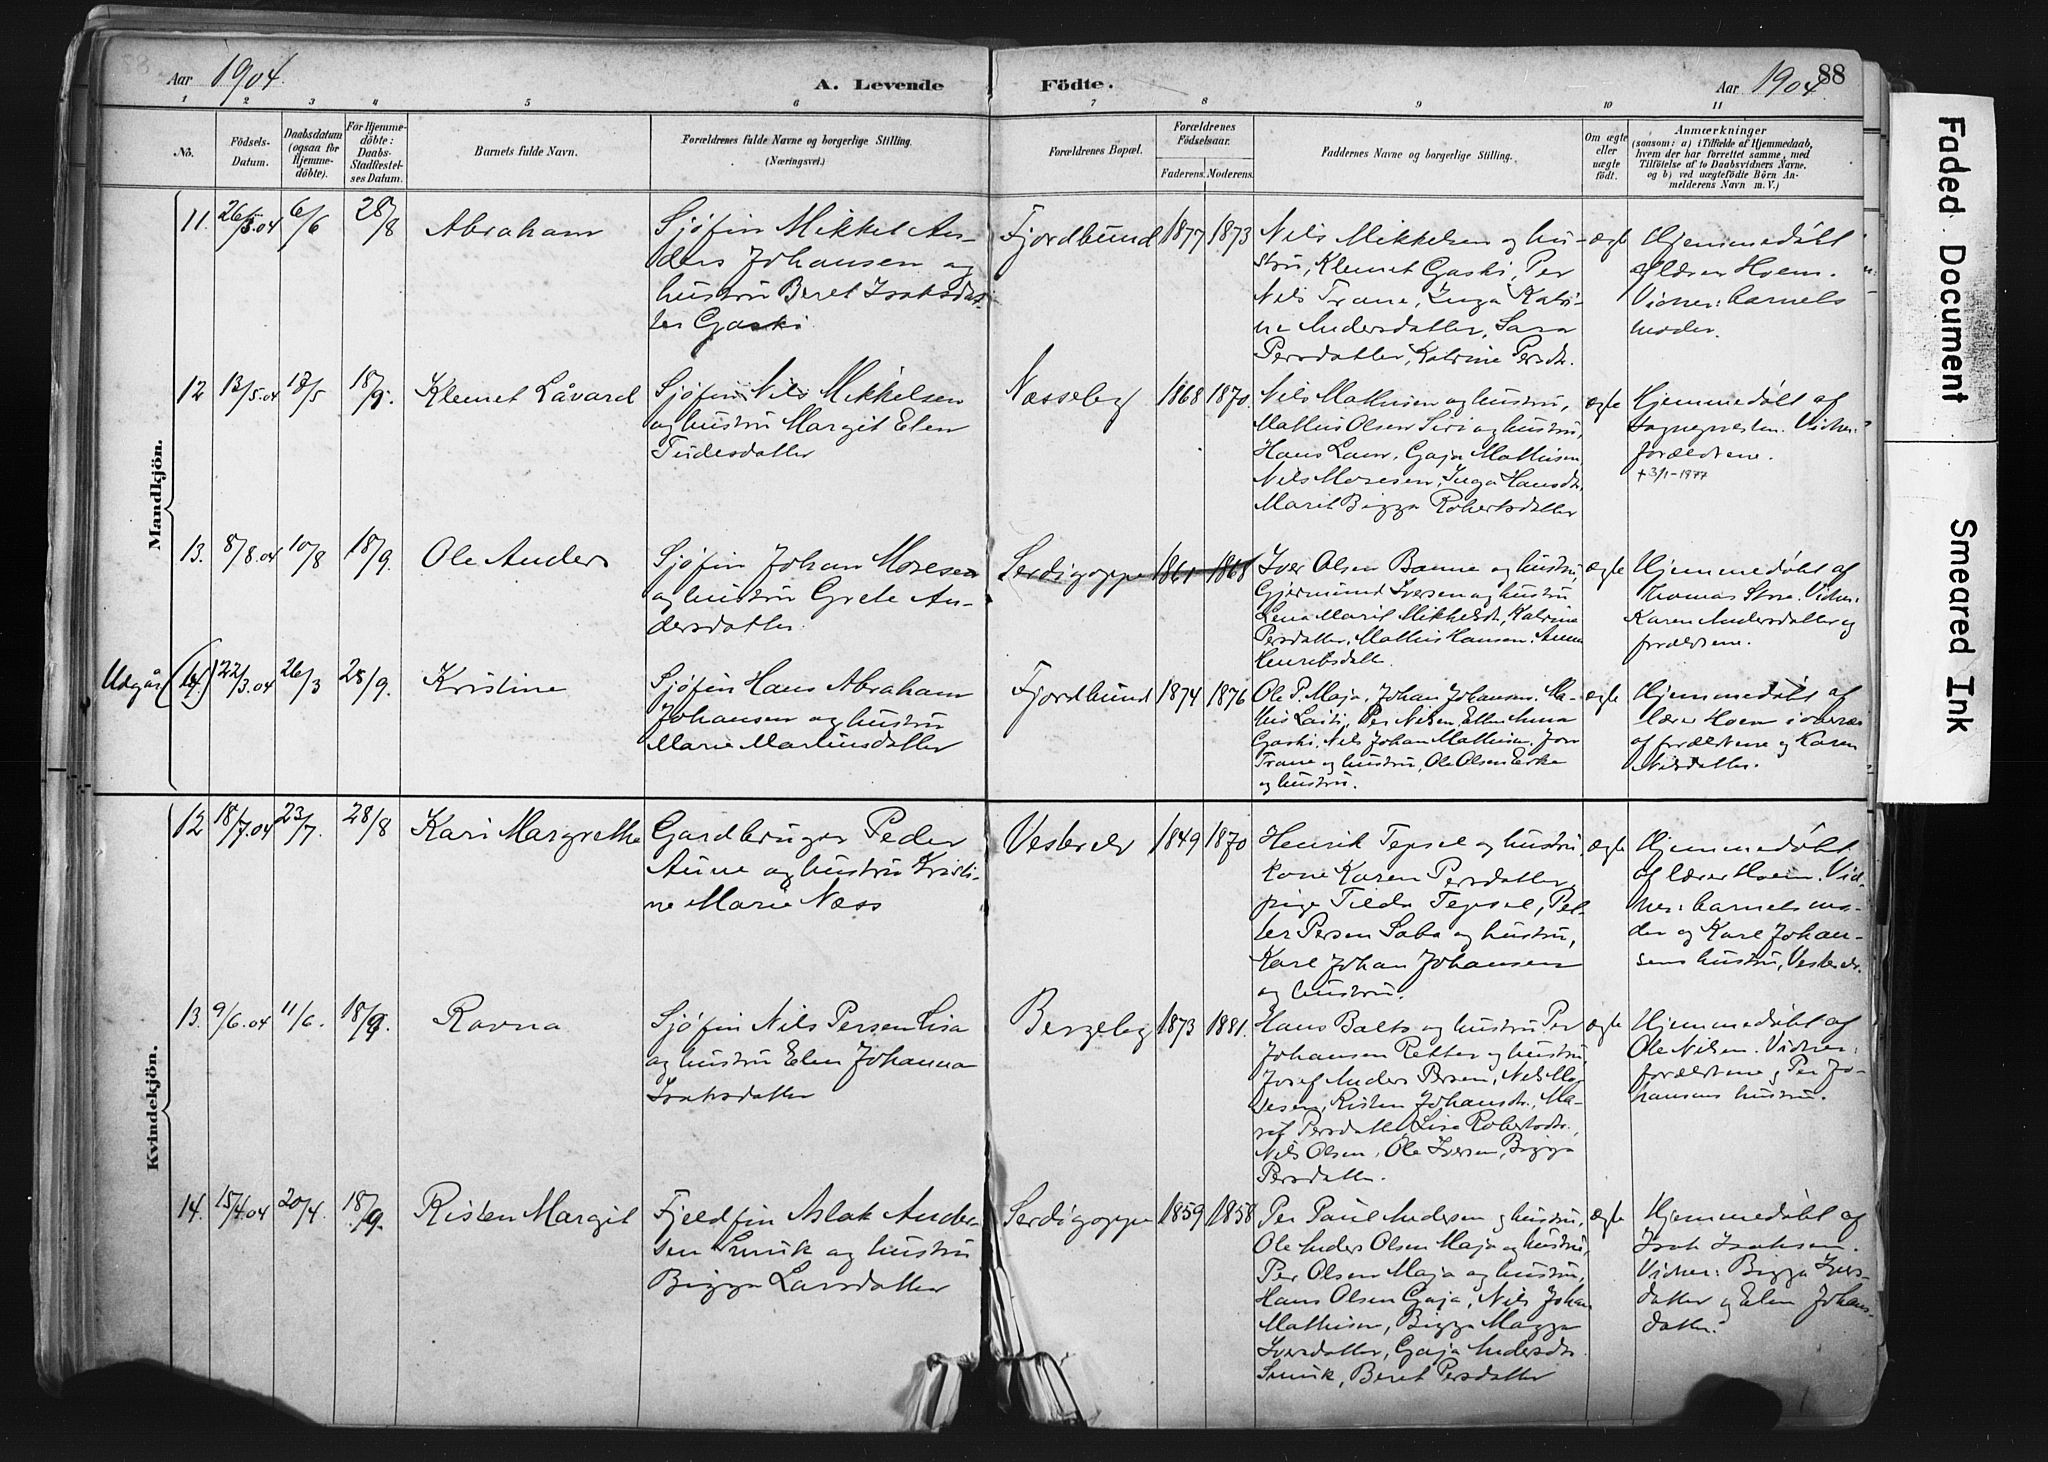 Aar 1904.
A. Levende
Födte.
Aar 1904.
88
1 2 3 4 5 6 7 8 9 10 11
No.
Födsels-
Datum.
Daabsdatum
(ogsaa för
Hjemme-
döbte).
For Hjemme-
döbte:
Daabs-
Stadfæstel-
ses Datum.
Barnets fulde Navn.
Forældrenes fulde Navne og borgerlige Stilling.
(Næringsvei.)
Forældrenes Bopæl.
Forældrenes
Födselsaar.
Faderens. Moderens.
Faddernes Navne og borgerlige Stilling.
Om ægte
eller
uægte
födt.
Anmærkninger
(saasom: a) i Tilfælde af Hjemmedaab,
hvem der har forrettet samme, med
Tilföielse af to Daabsvidners Navne.
og b) ved uægtefödte Börn An-
melderens Navn m. V.)
Mandkjön.
11. 26/3.04 6/6 28/8 Abraham
Sjøfin Mikkel An-
ders Johansen og
hustru Beret Isaksdat-
ter Gaski
Fjordbund 1877 1873
Nils Mikkelsen og hu-
stru, Klemet Gaski, Per
Nils Trane, Inga Katri-
ne Andersdatter, Sara
Persdatter, Katrine Persdt.
ægte
Hjemmedøbt
af lærer Hoem.
Vidner: barnets
moder.
12 13/5.04 17/5 18/9. Klemet Låvard
Sjøfin Nils Mikkelsen
og hustru Margit Elen
Tudesdatter
Næsseby 1868 1870.
Nils Mathisen og hustru,
Mathis Olsen Siri og hustru,
Hans Laur, Gaja Mathisen
Nils Mosesen, Inga Hansdt.
Marit Bigga Robertsdatter
ægte
Hjemmedøbt af
sognepresten. Vidner:
forældrene.
+3/1-1977
13. 8/8.04 10/8 18/9. Ole Anders
Sjøfin Johan Mosesen
og hustru Grete An-
dersdatter.
Serdigoppe 1861 1868
Iver Olsen Banne og hustru,
Gjermund Iversen og hustru
Lena Marit Mikkelsdt., Katrine
Persdatter, Mathis Hansen, Anna
Henriksdatter.
ægte
Hjemmedøbt af
Thomas Store. Vidner:
Karen Andersdatter og
forældrene.
Udgår (14) 22/3.04 26/3 28/9. Kristine
Sjøfin Hans Abraham
Johansen og hustru
Marie Martinsdatter
Fjordbund 1874 1876
Ole P. Maja, Johan Johansen, Ma-
this Lasti, Per Nilsen, Ellen Anna
Gaski, Nils Johan Mathisen, Jon
Trane og hustru, Ole Olsen Erke
og hustru.
ægte
Hjemmedøbt af
lærer Hoem i overvær
af forældrene og Karen
Nilsdatter.
Kvindekjön.
12 18/7.04 23/7. 28/8 Kari Margrethe
Gardbruger Peder
Aune og hustru Kristi-
ne Marie Næss
Vesterelv 1849 1870
Henrik Tepsel og hustru,
kone Karen Persdatter,
pige Tilda Tepsel, Pet-
ter Persen Saba og hustru,
Karl Johan Johansen
og hustru.
ægte
Hjemmedøbt
af lærer Hoem. Vid-
ner: barnets mo-
der og Karl Johan-
sens hustru, Vesterelv.
13. 9/6.04 11/6. 18/9. Ravna
Sjøfin Nils Persen Lisa
og hustru Elen Johanna
Isaksdatter
Bergeby 1873 1881.
Hans Balto og hustru Per
Johansen Retter og hustru
Josef Anders Persen, Nils Mo-
sesen, Risten Johansdt., Ma-
rit Persdatter, Lisa Robertsdt.,
Nils Olsen, Ole Iversen, Bigga
Persdatter.
ægte
Hjemmedøbt af
Ole Nilsen. Vidner:
forældrene, Per Jo-
hansens hustru.
14. 15/4.04 20/4. 18/9. Risten Margit
Fjeldfin Aslak Ander-
sen Smuk og hustru
Bigga Larsdatter
Serdigoppe 1859 1858
Per Paul Andersen og hustru,
Ole Anders Olsen Maja og hustru,
Per Olsen Maja og hustru,
Hans Olsen Gaja, Nils Johan
Mathisen, Bigga Magga
Iversdatter, Gaja Andersdt.
Smuk, Beret Persdatter
ægte
Hjemmedøbt af
Isak Isaksen.
Vidner: Bigga Ivers-
datter og Elen Johans-
datter.
Faded Document
Smeared Ink